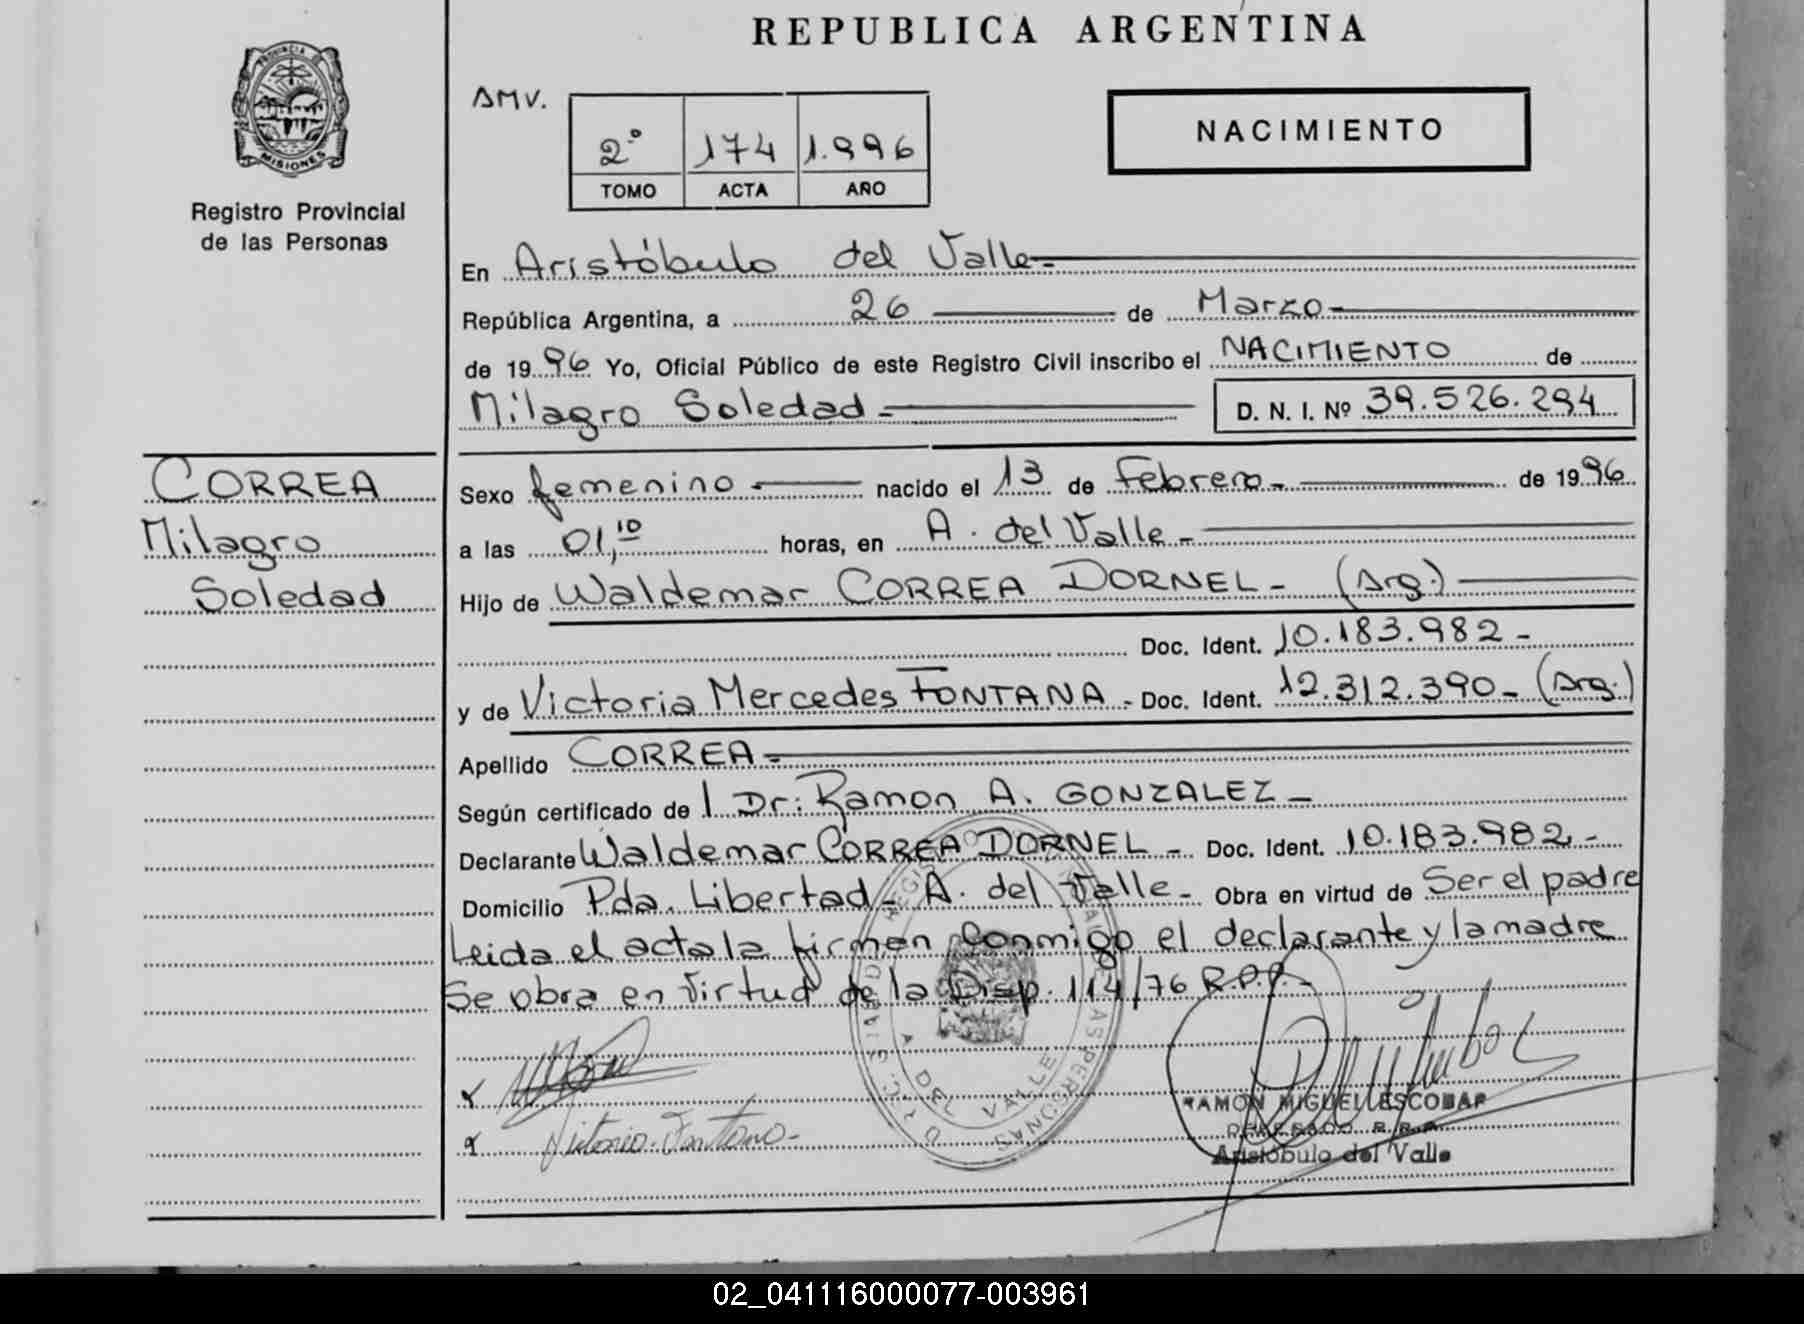 REPUBLICA ARGENTINA
PROVINCIA DE
MISIONES
Registro Provincial
de las Personas
AMV.
2° 174 1.996
TOMO ACTA AÑO
NACIMIENTO
En Aristóbulo del Valle-
República Argentina, a 26 de Marzo-
de 1996 Yo, Oficial Público de este Registro Civil inscribo el NACIMIENTO de
Milagro Soledad- D. N. I. Nº 39.526.294
CORREA
Milagro
Soledad
Sexo femenino - nacido el 13 de Febrero- de 1996
a las 01,10 horas, en A. del Valle-
Hijo de Waldemar CORREA DORNEL- (Arg.)
Doc. Ident. 10.183.982-
y de Victoria Mercedes FONTANA- Doc. Ident. 12.312.390- (Arg.)
Apellido CORREA-
Según certificado de l Dr: Ramon A. GONZALEZ-
Declarante Waldemar CORREA DORNEL- Doc. Ident. 10.183.982-
Domicilio Pda. Libertad- A. del Valle- Obra en virtud de Ser el padre
Leida el acta la firman conmigo el declarante y la madre
Se obra en virtud de la Disp. 114/76 R.P.P.-
DEL VALLE
RAMON MIGUEL ESCOBAR
Aristóbulo del Valle
02_041116000077-003961